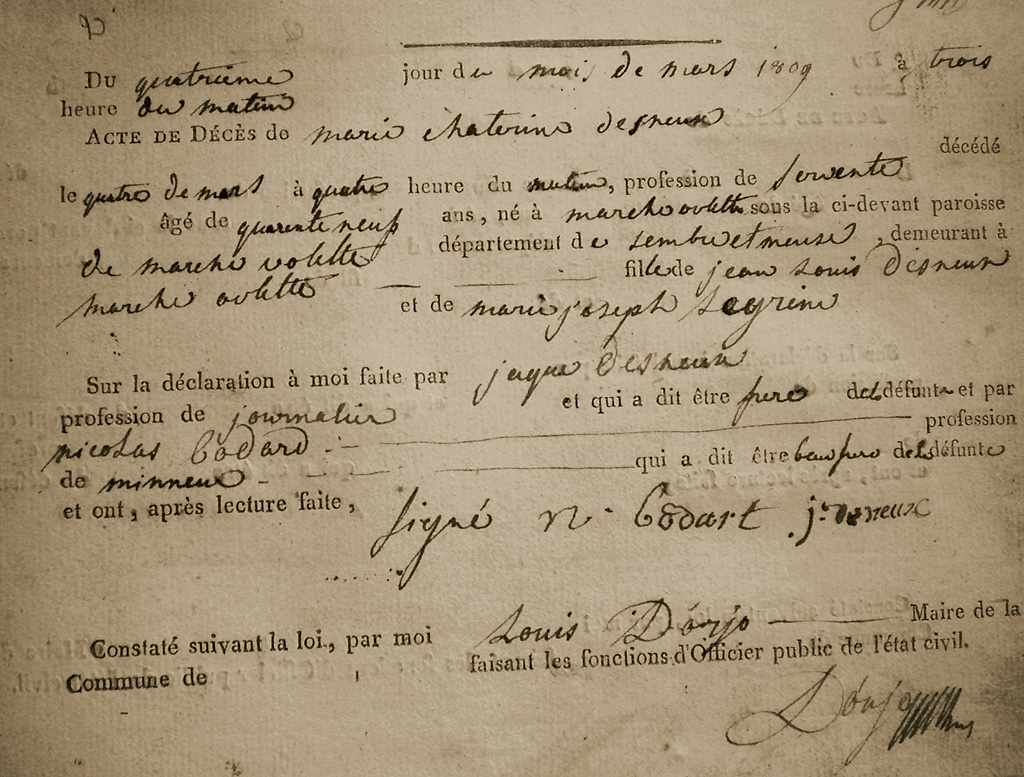 Du quatrieme jour du mois de mars 1809 à trois
heure du matin
ACTE DE DÉCÈS de marie chaterine desneux
décédé
le quatre de mars à quatre heure du matin, profession de servente
âgé de quarente neuf ans, né à marche ovlette sous la ci-devant paroisse
de marche volette département de sembre et meuse, demeurant à
marche ovlette fille de jean Louis Desneux
et de marie joseph Legrine
Sur la déclaration à moi faite par jaque Desneux
profession de journalier et qui a dit être frere de la défunte et par
nicolas Godard profession
de minneur qui a dit être beau frere de la défunte
et ont, après lecture faite, signé N. Godart j. desneux
Constaté suivant la loi, par moi Louis Dorjo Maire de la
Commune de faisant les fonctions d'Officier public de l'état civil.